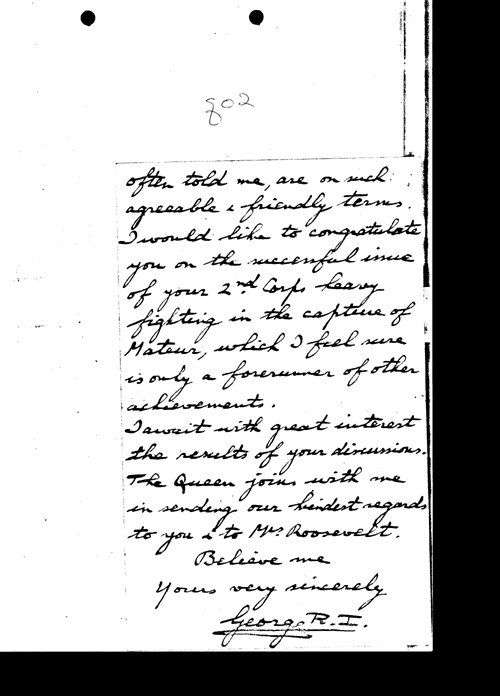 802
often told me, are on such
agreeable & friendly terms.
I would like to congratulate
you on the successful issue
of your 2nd Corps heavy
fighting in the capture of
Mateur, which I feel sure
is only a forerunner of other
achievements.
I await with great interest
the results of your discussions.
The Queen joins with me
in sending our kindest regards
to you & to Mrs Roosevelt.
Believe me
Yours very sincerely
George R.I.